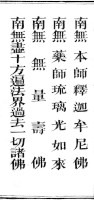 南無本師釋迦牟尼佛
南無藥師琉璃光如來
南無無量壽佛
南無盡十方遍法界過去一切諸佛